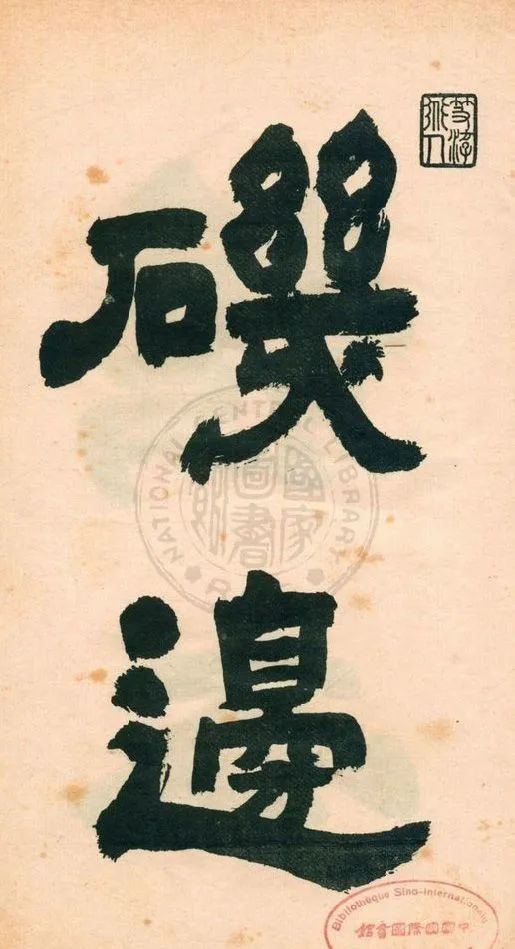 磯邊
NATIONAL CENTRAL LIBRARY
國家圖書館
Bibliothèque Sino-Internationale
中國國際圖書館